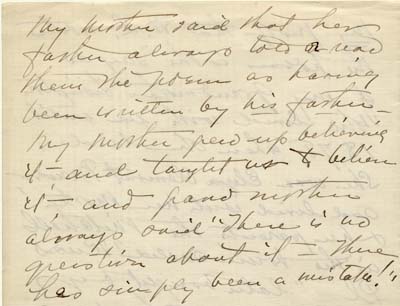 My mother said that her
father always told or read
them the poem as having
been written by his father –
My mother grew up believing
it – and taught us to believe
it – and grand mother
always said "There is no
question about it – there
has simply been a mistake!",